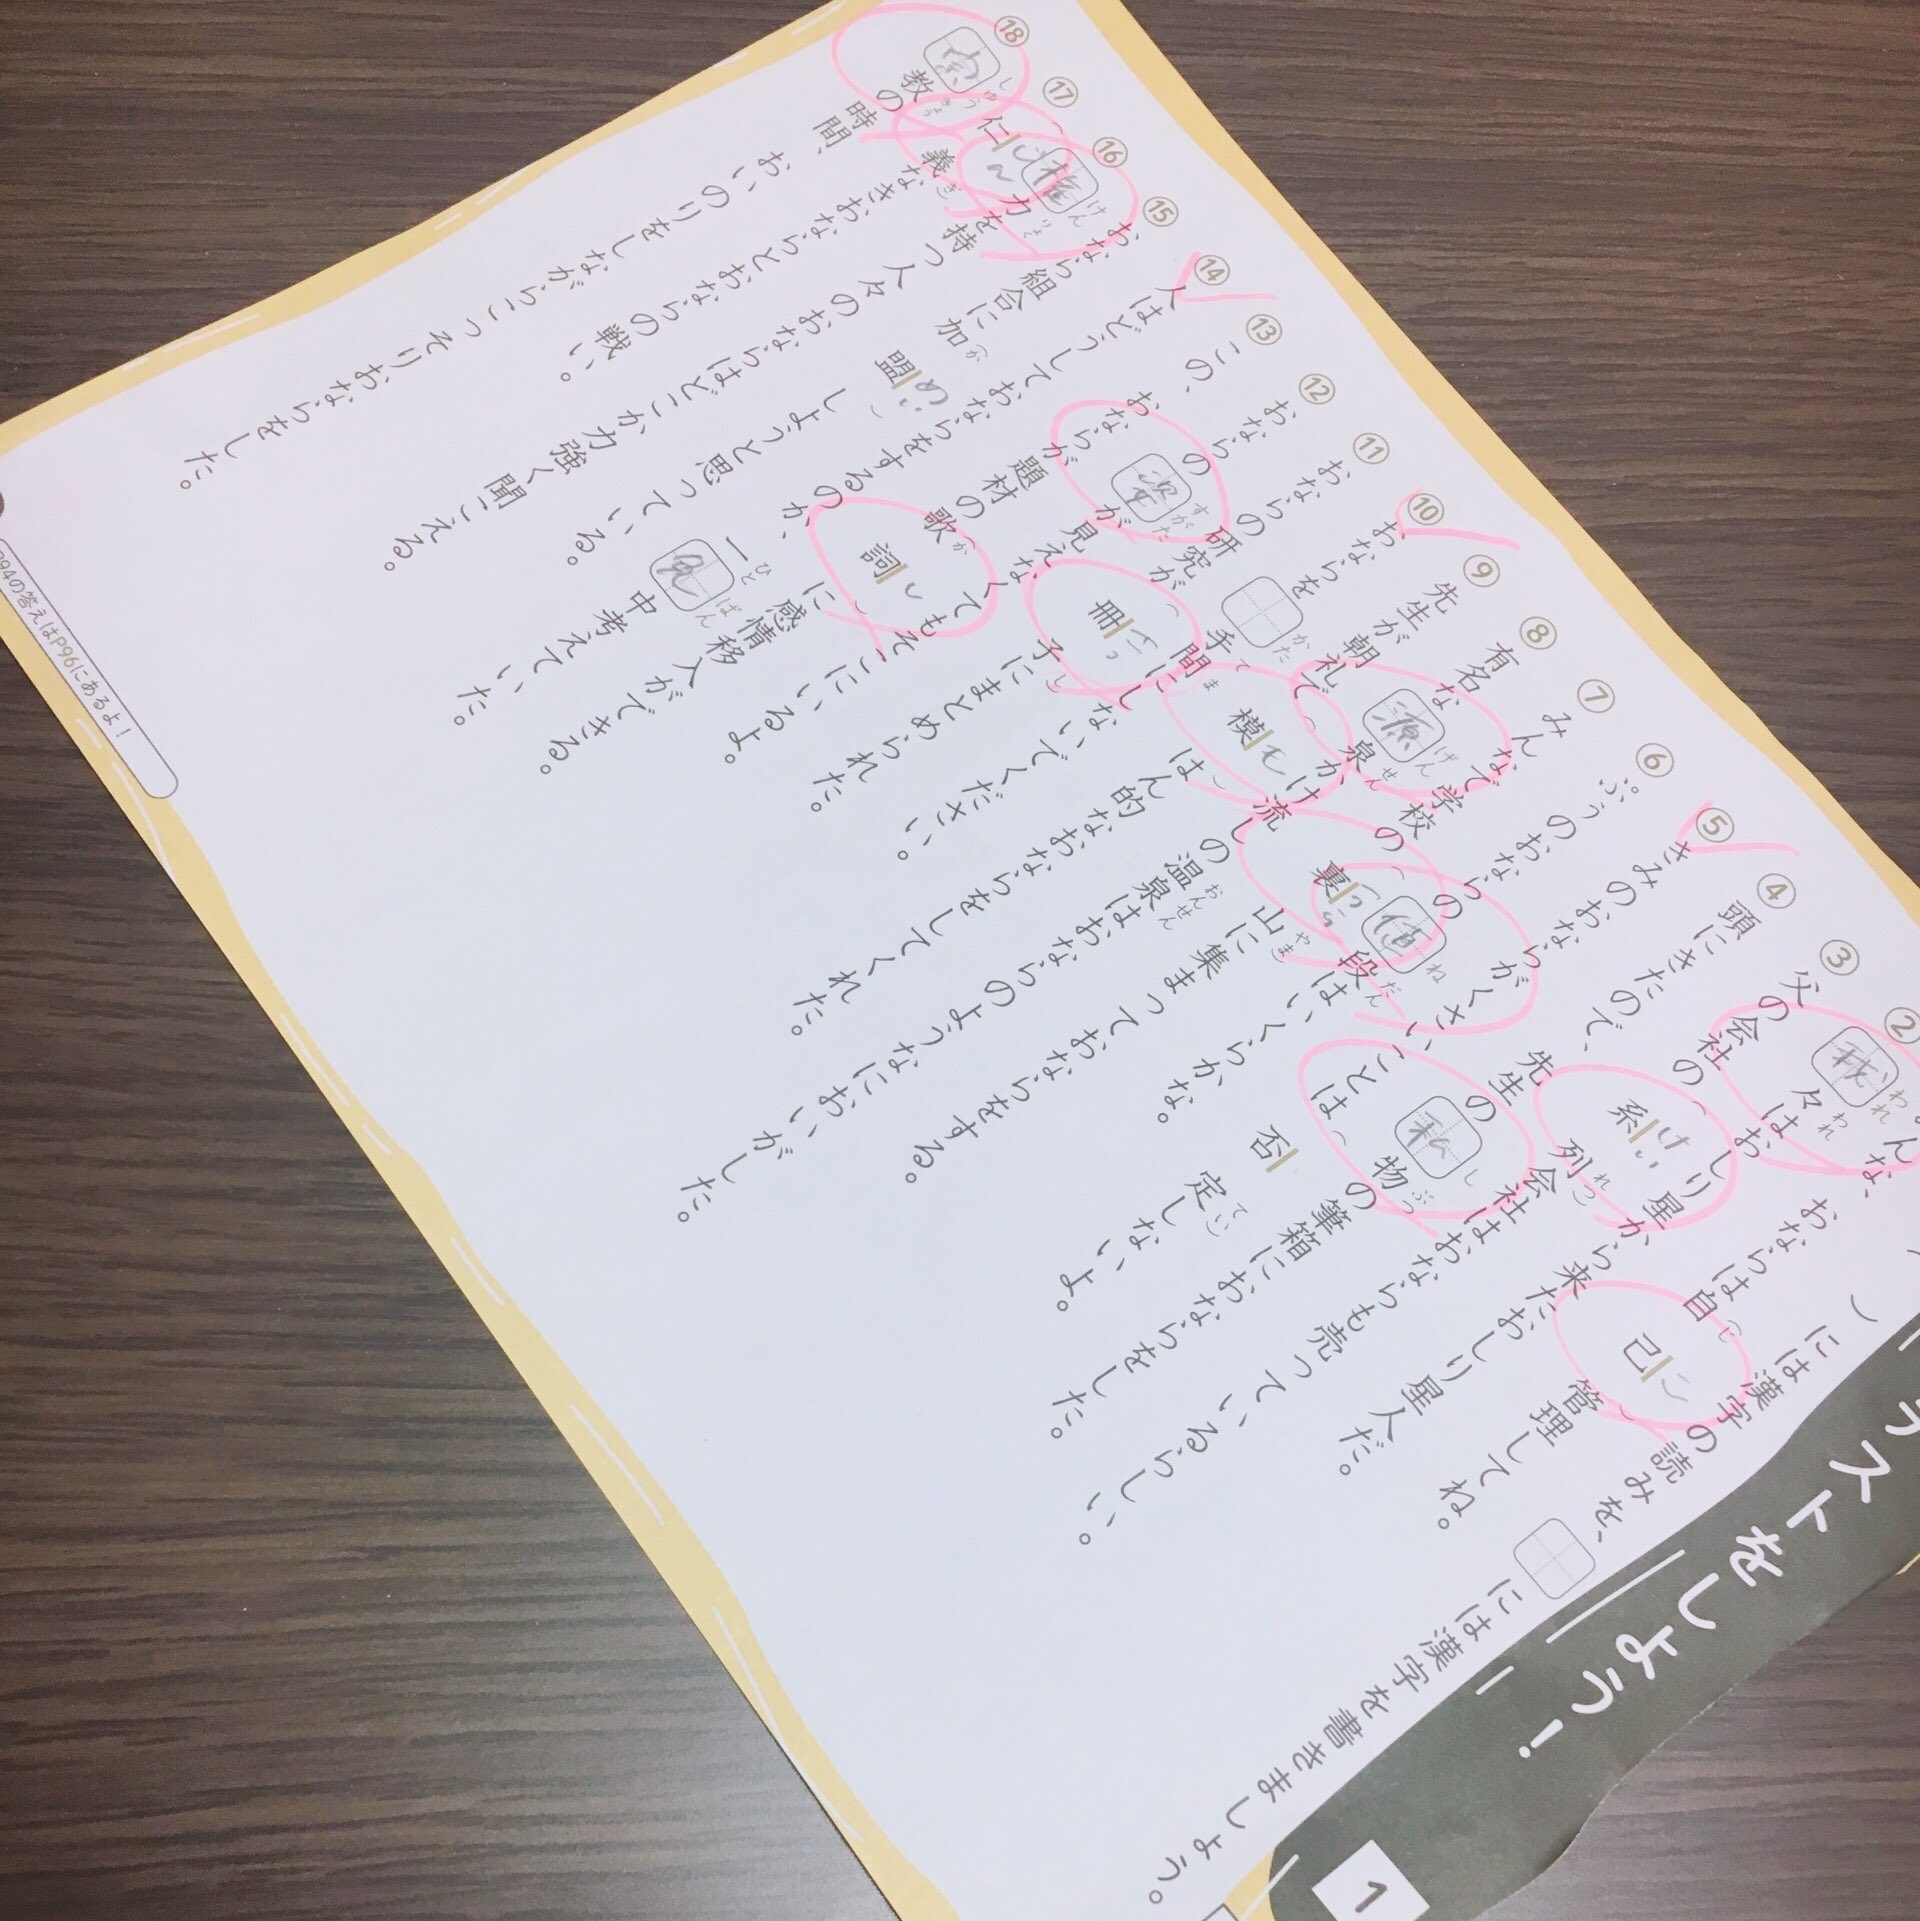 ストをしよう！
1
）には漢字の読みを、
には漢字を書きましょう。
おならは自己管理してね。
じ こ
② んな、我々はおしり星から来たおしり星人だ。
われ われ
③ 父の会社の系列会社はおならも売っているらしい。
けい れつ
④ 頭にきたので、先生の私物の筆箱におならをした。
し ぶつ
⑤ きみのおならがくさいことは否定しないよ。
てい
⑥ ぷぅのおならの値段はいくらかな。
ね だん
⑦ みんなで学校の裏山に集まっておならをする。
うら やま
⑧ 有名な源泉かけ流しの温泉はおならのようなにおいがした。
げん せん おんせん
⑨ 先生が朝礼で模はん的なおならをしてくれた。
も
⑩ おならを手間にしないでください。
かた て ま
⑪ おならの研究が冊子にまとめられた。
さっ し
⑫ おならの姿が見えなくてもそこにいるよ。
すがた
⑬ この、おならが題材の歌詞に感情移入ができる。
か し
⑭ 人はどうしておならをするのか、一中考えていた。
ひと ばん
⑮ おなら組合に加盟しようと思っている。
か めい
⑯ 権力を持つ人々のおならはどこか力強く聞こえる。
けん りょく
⑰ 仁義なきおならとおならの戦い。
じん ぎ
⑱ 宗教の時間、おいのりをしながらこっそりおならをした。
しゅう きょう
P94の答えはP96にあるよ！